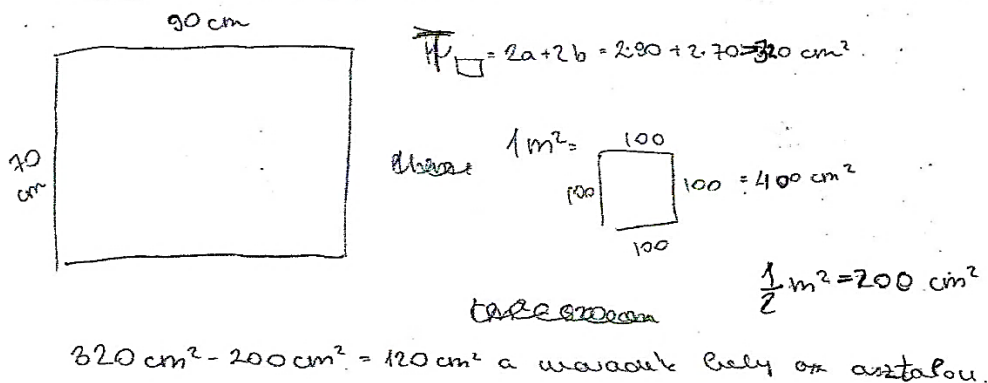 90 cm
T▭ = 2a+2b = 2·90 + 2·70 = 320 cm².
70 cm
1 m² =
100
100
100 = 400 cm²
100
1/2 m² = 200 cm²
320 cm² - 200 cm² = 120 cm² a maradék hely az asztalon.